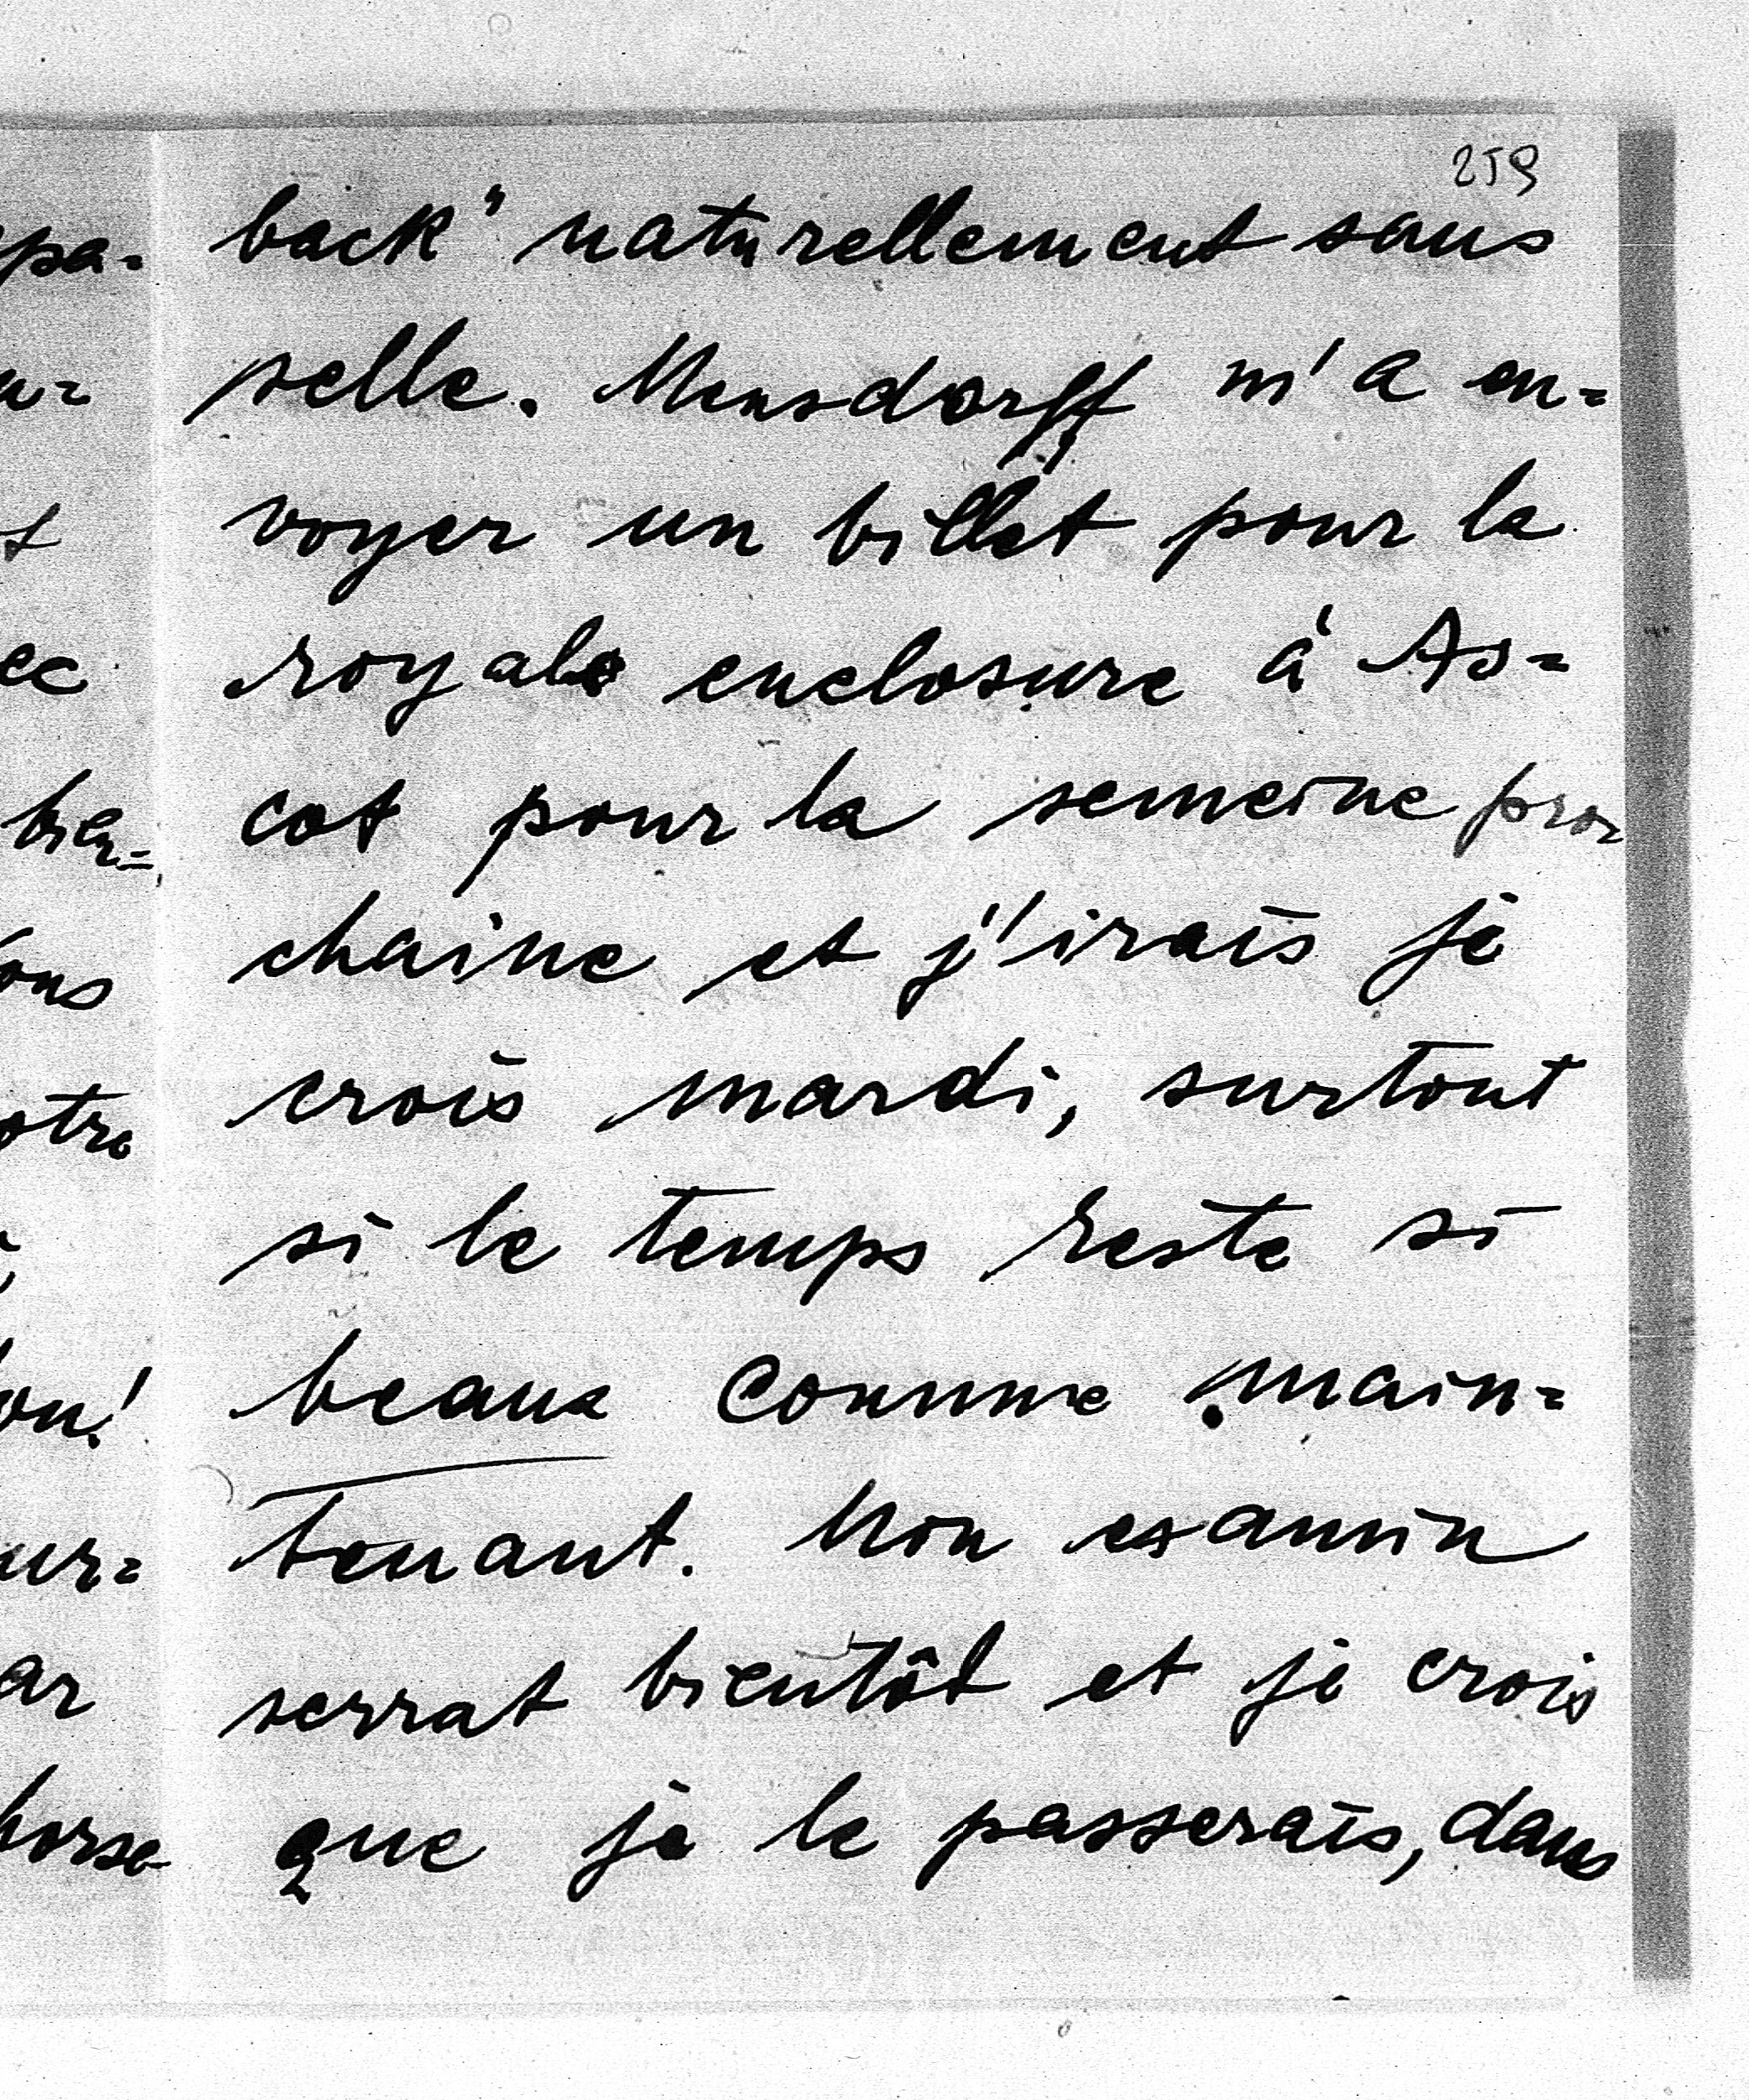 259
back" naturellement sans
selle. Mensdorff m'a en=
voyer un billet pour la
royale enclosure à As=
cot pour la semeine pro=
chaine et j'irais je
crois mardi, surtout
si le temps reste si
beaux comme main=
tenant. Mon examin
serrat bientôt et je crois
que je le passerais, dans